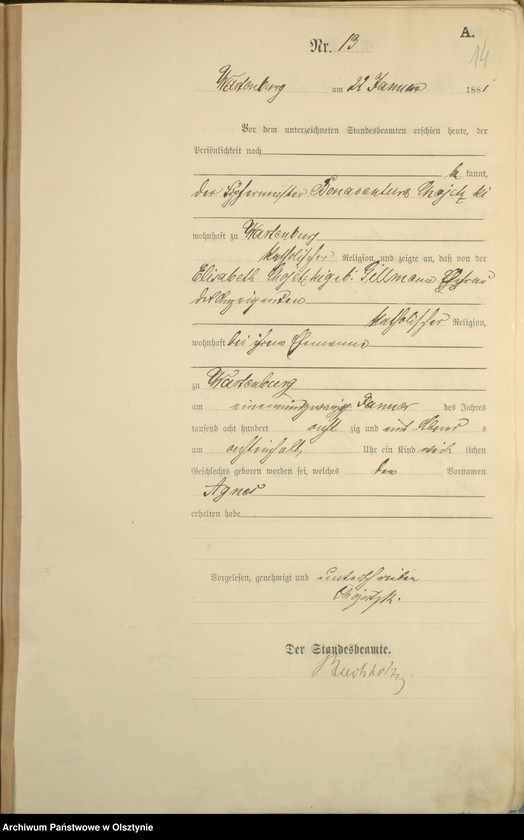 A.
14
Nr. 13
Wartenburg am 22 Januar 1881
Vor dem unterzeichneten Standesbeamten erschien heute, der
Persönlichkeit nach
be kannt,
der Töpfermeister Bonaventura Chojetzki
wohnhaft zu Wartenburg
katholischer Religion, und zeigte an, daß von der
Elisabeth Chojetzki geb. Tillmann Ehefrau
des Anzeigenden
katholischer Religion,
wohnhaft bei ihrem Ehemanne
zu Wartenburg
am einundzwanzigsten Januar des Jahres
tausend acht hundert acht zig und eins Abends
um achteinhalb Uhr ein Kind weib lichen
Geschlechts geboren worden sei, welches den Vornamen
Agnes
erhalten habe
Vorgelesen, genehmigt und unterschrieben
Der Standesbeamte.
Buchholz
Archiwum Państwowe w Olsztynie